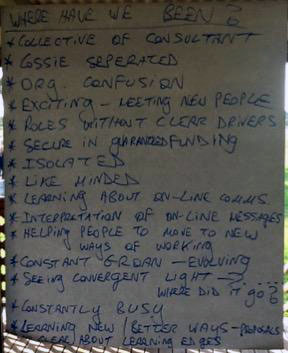 WHERE HAVE WE BEEN?
* COLLECTIVE OF CONSULTANT
* COSSIE SEPERATED
* ORG. CONFUSION
* EXCITING - MEETING NEW PEOPLE
* ROLES WITHOUT CLEAR DRIVERS
* SECURE IN GUARANTEED FUNDING
* ISOLATED
* LIKE MINDED
* LEARNING ABOUT ON-LINE COMMS
* INTERPRETATION OF ON-LINE MESSAGES
* HELPING PEOPLE TO MOVE TO NEW
WAYS OF WORKING
* CONSTANT GROAN - EVOLVING
* SEEING CONVERGENT LIGHT -
WHERE DID IT GO?
* CONSTANTLY BUSY
* LEARNING NEW / BETTER WAYS - PROPOSALS
* CLEAR ABOUT LEARNING EDGES